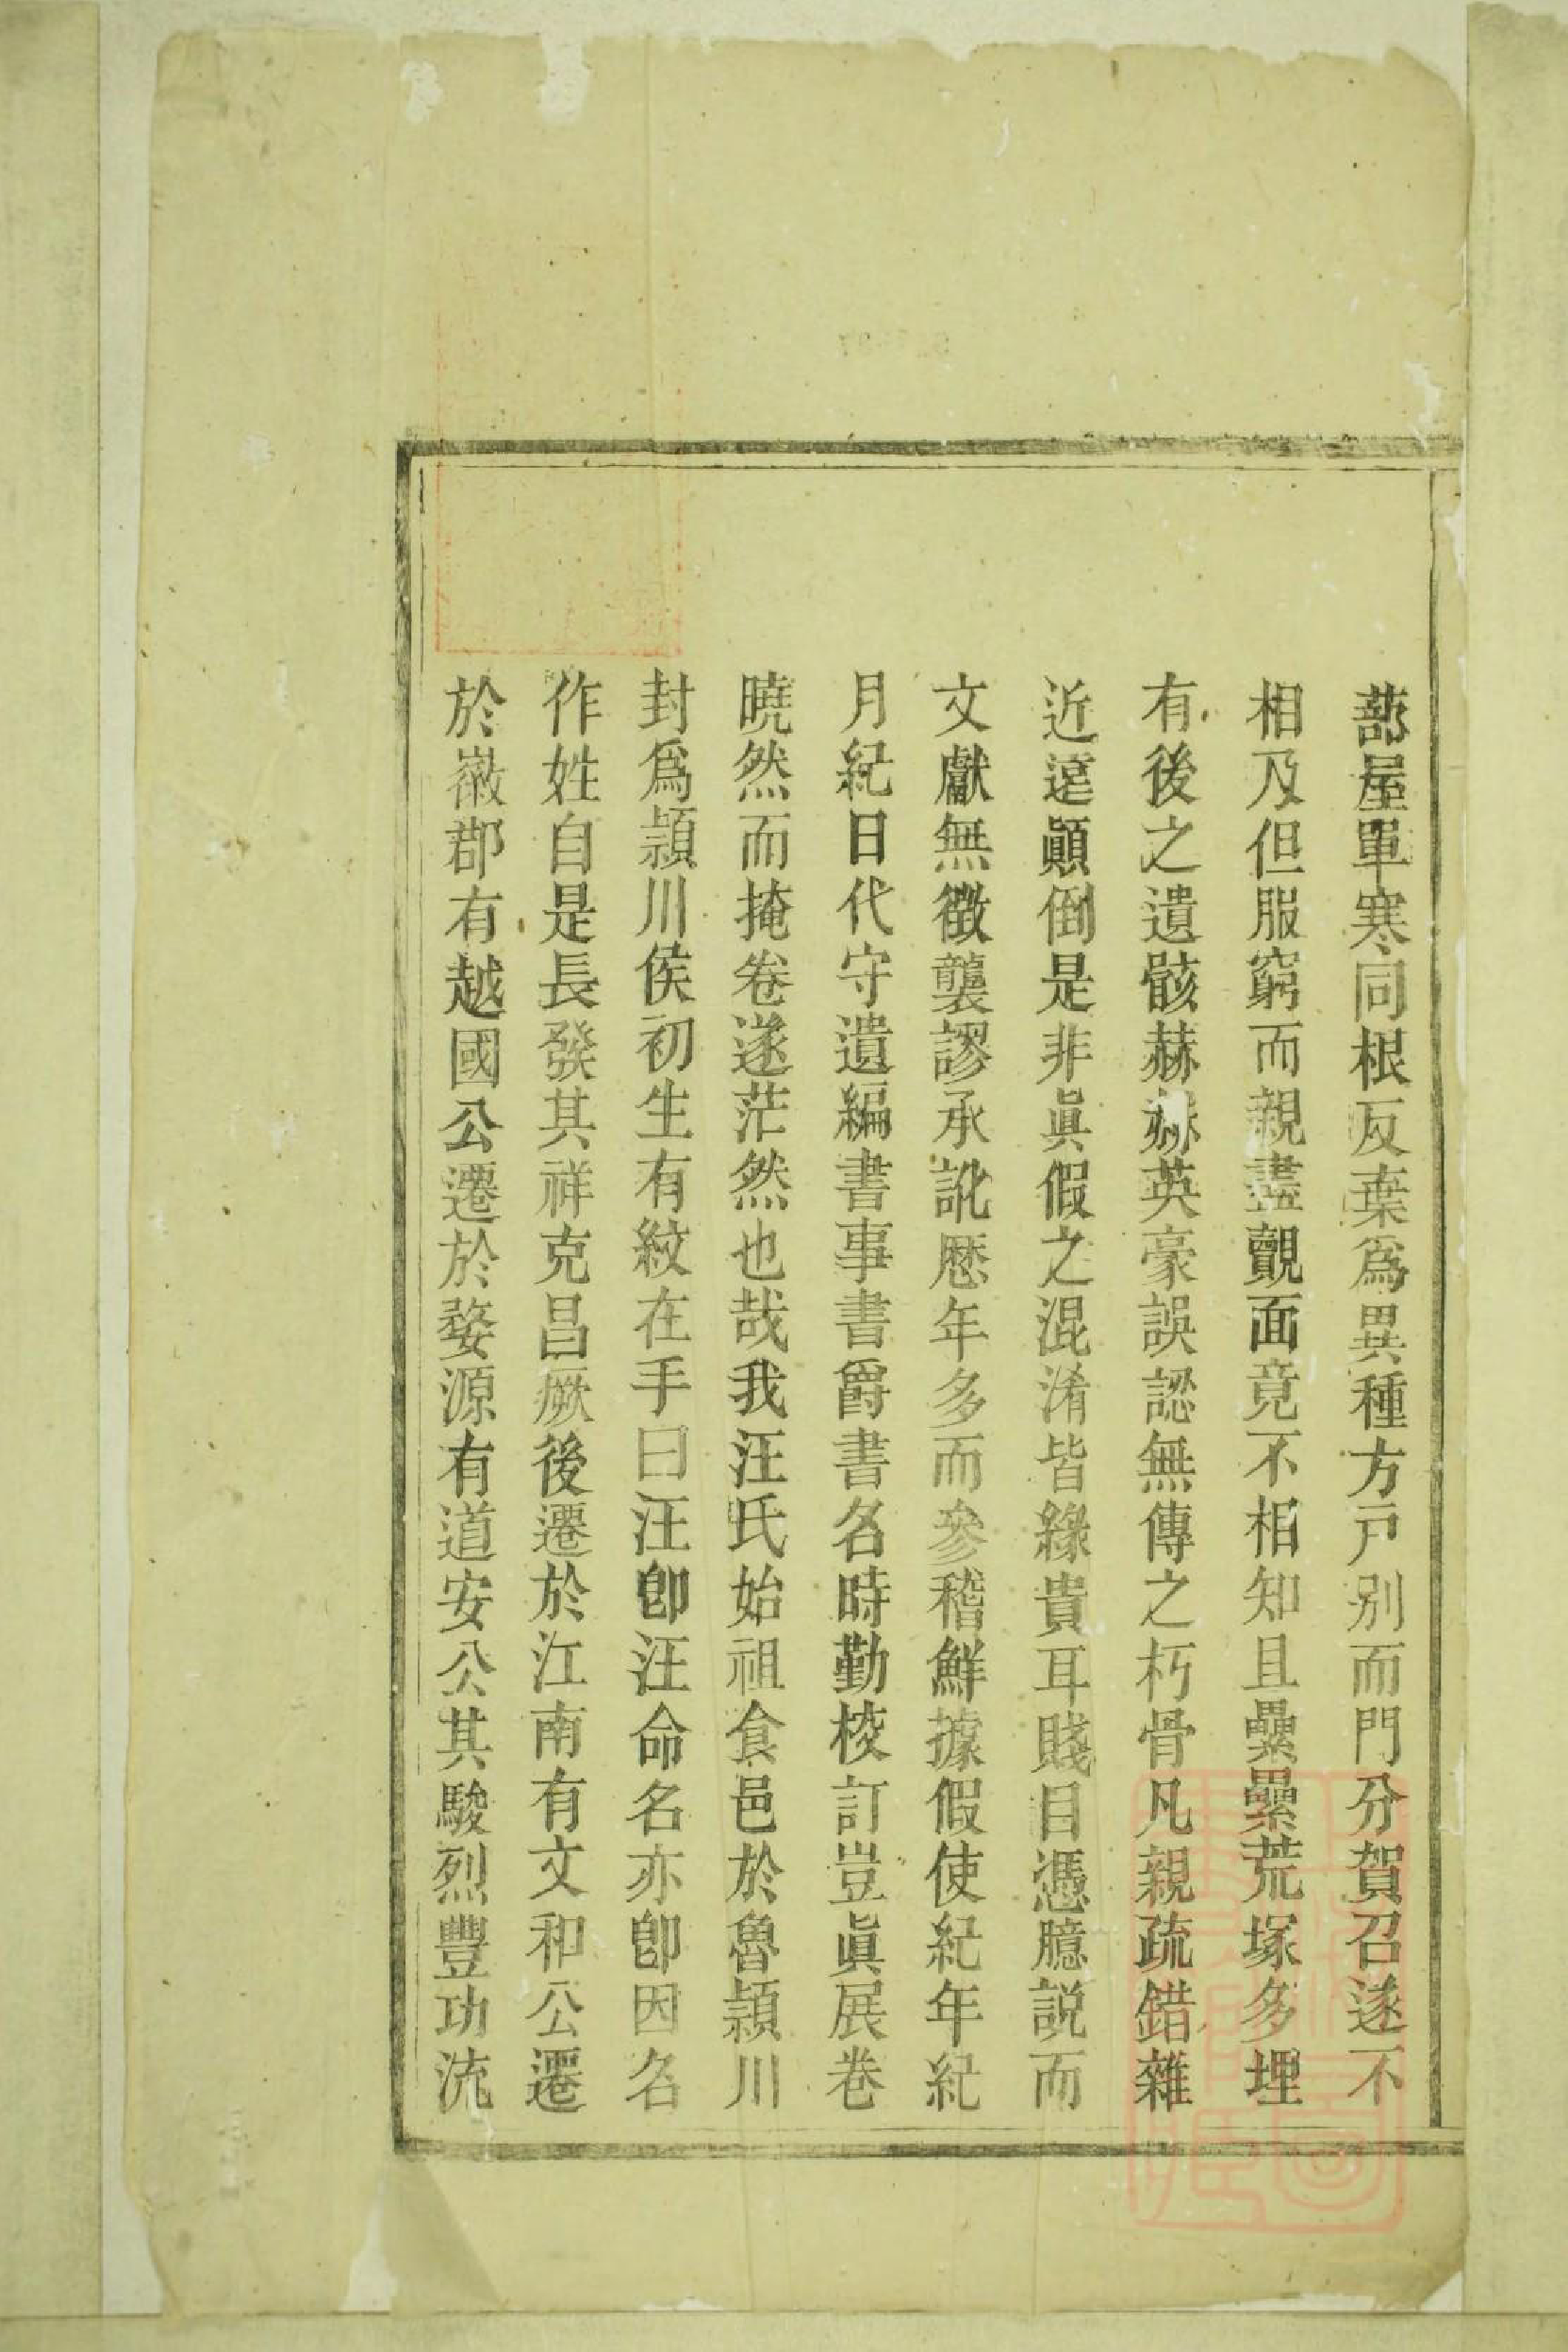 蔀屋單寒同根反葉爲異種方戸别而門分賀召遂不
相及但服窮而親盡覿面竟不相知且纍纍荒塚多埋
有後之遺骸赫赫英豪誤認無傳之朽骨凡親疏錯雜
近遠顚倒是非眞假之混淆皆緣貴耳賤目憑臆説而
文獻無徵襲謬承訛歴年多而參稽鮮據假使紀年紀
月紀日代守遺編書事書爵書名時勤校訂豈眞展卷
曉然而掩卷遂茫然也哉我汪氏始祖食邑於魯頴川
封爲頴川侯初生有紋在手曰汪卽汪命名亦卽因名
作姓自是長發其祥克昌厥後遷於江南有文和公遷
於徽郡有越國公遷於婺源有道安公其駿烈豐功流